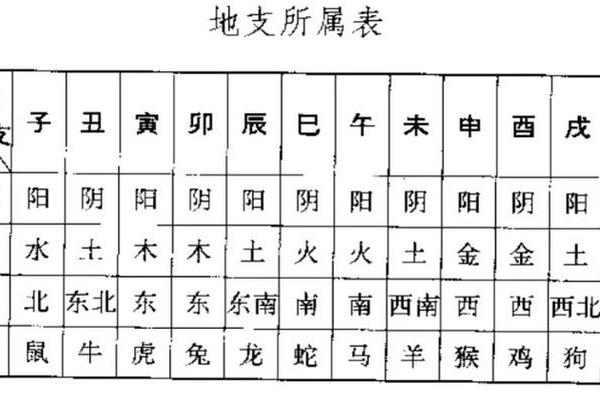 地支所属表
支 子 丑 寅 卯 辰 巳 午 未 申 酉 戌
阳 阴 阳 阴 阳 阴 阳 阴 阳 阴 阳
水 土 木 木 土 火 火 土 金 金 土
北 东北 东 东 东南 南 南 西南 西 西 西北
鼠 牛 虎 兔 龙 蛇 马 羊 猴 鸡 狗